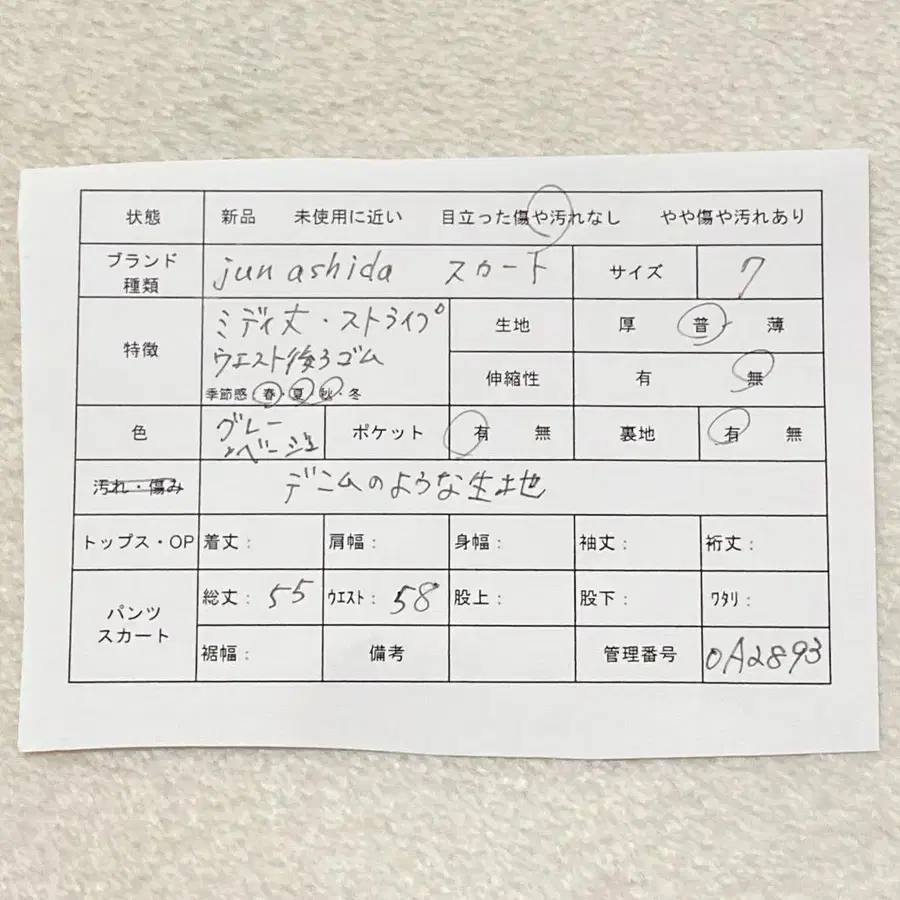 状態 新品 未使用に近い 目立った傷や汚れなし やや傷や汚れあり
ブランド 種類 jun ashida スカート サイズ 7
特徴 ミディ丈・ストライプ 生地 厚 普・薄
ウエスト後ろゴム 伸縮性 有 無
季節感 春・夏・秋・冬
色 グレー ポケット 有 無 裏地 有 無
・ベージュ
汚れ・傷み デニムのような生地
トップス・OP 着丈: 肩幅: 身幅: 袖丈: 裄丈:
パンツ スカート 総丈: 55 ウエスト: 58 股上: 股下: ワタリ:
裾幅: 備考 管理番号 0A2893